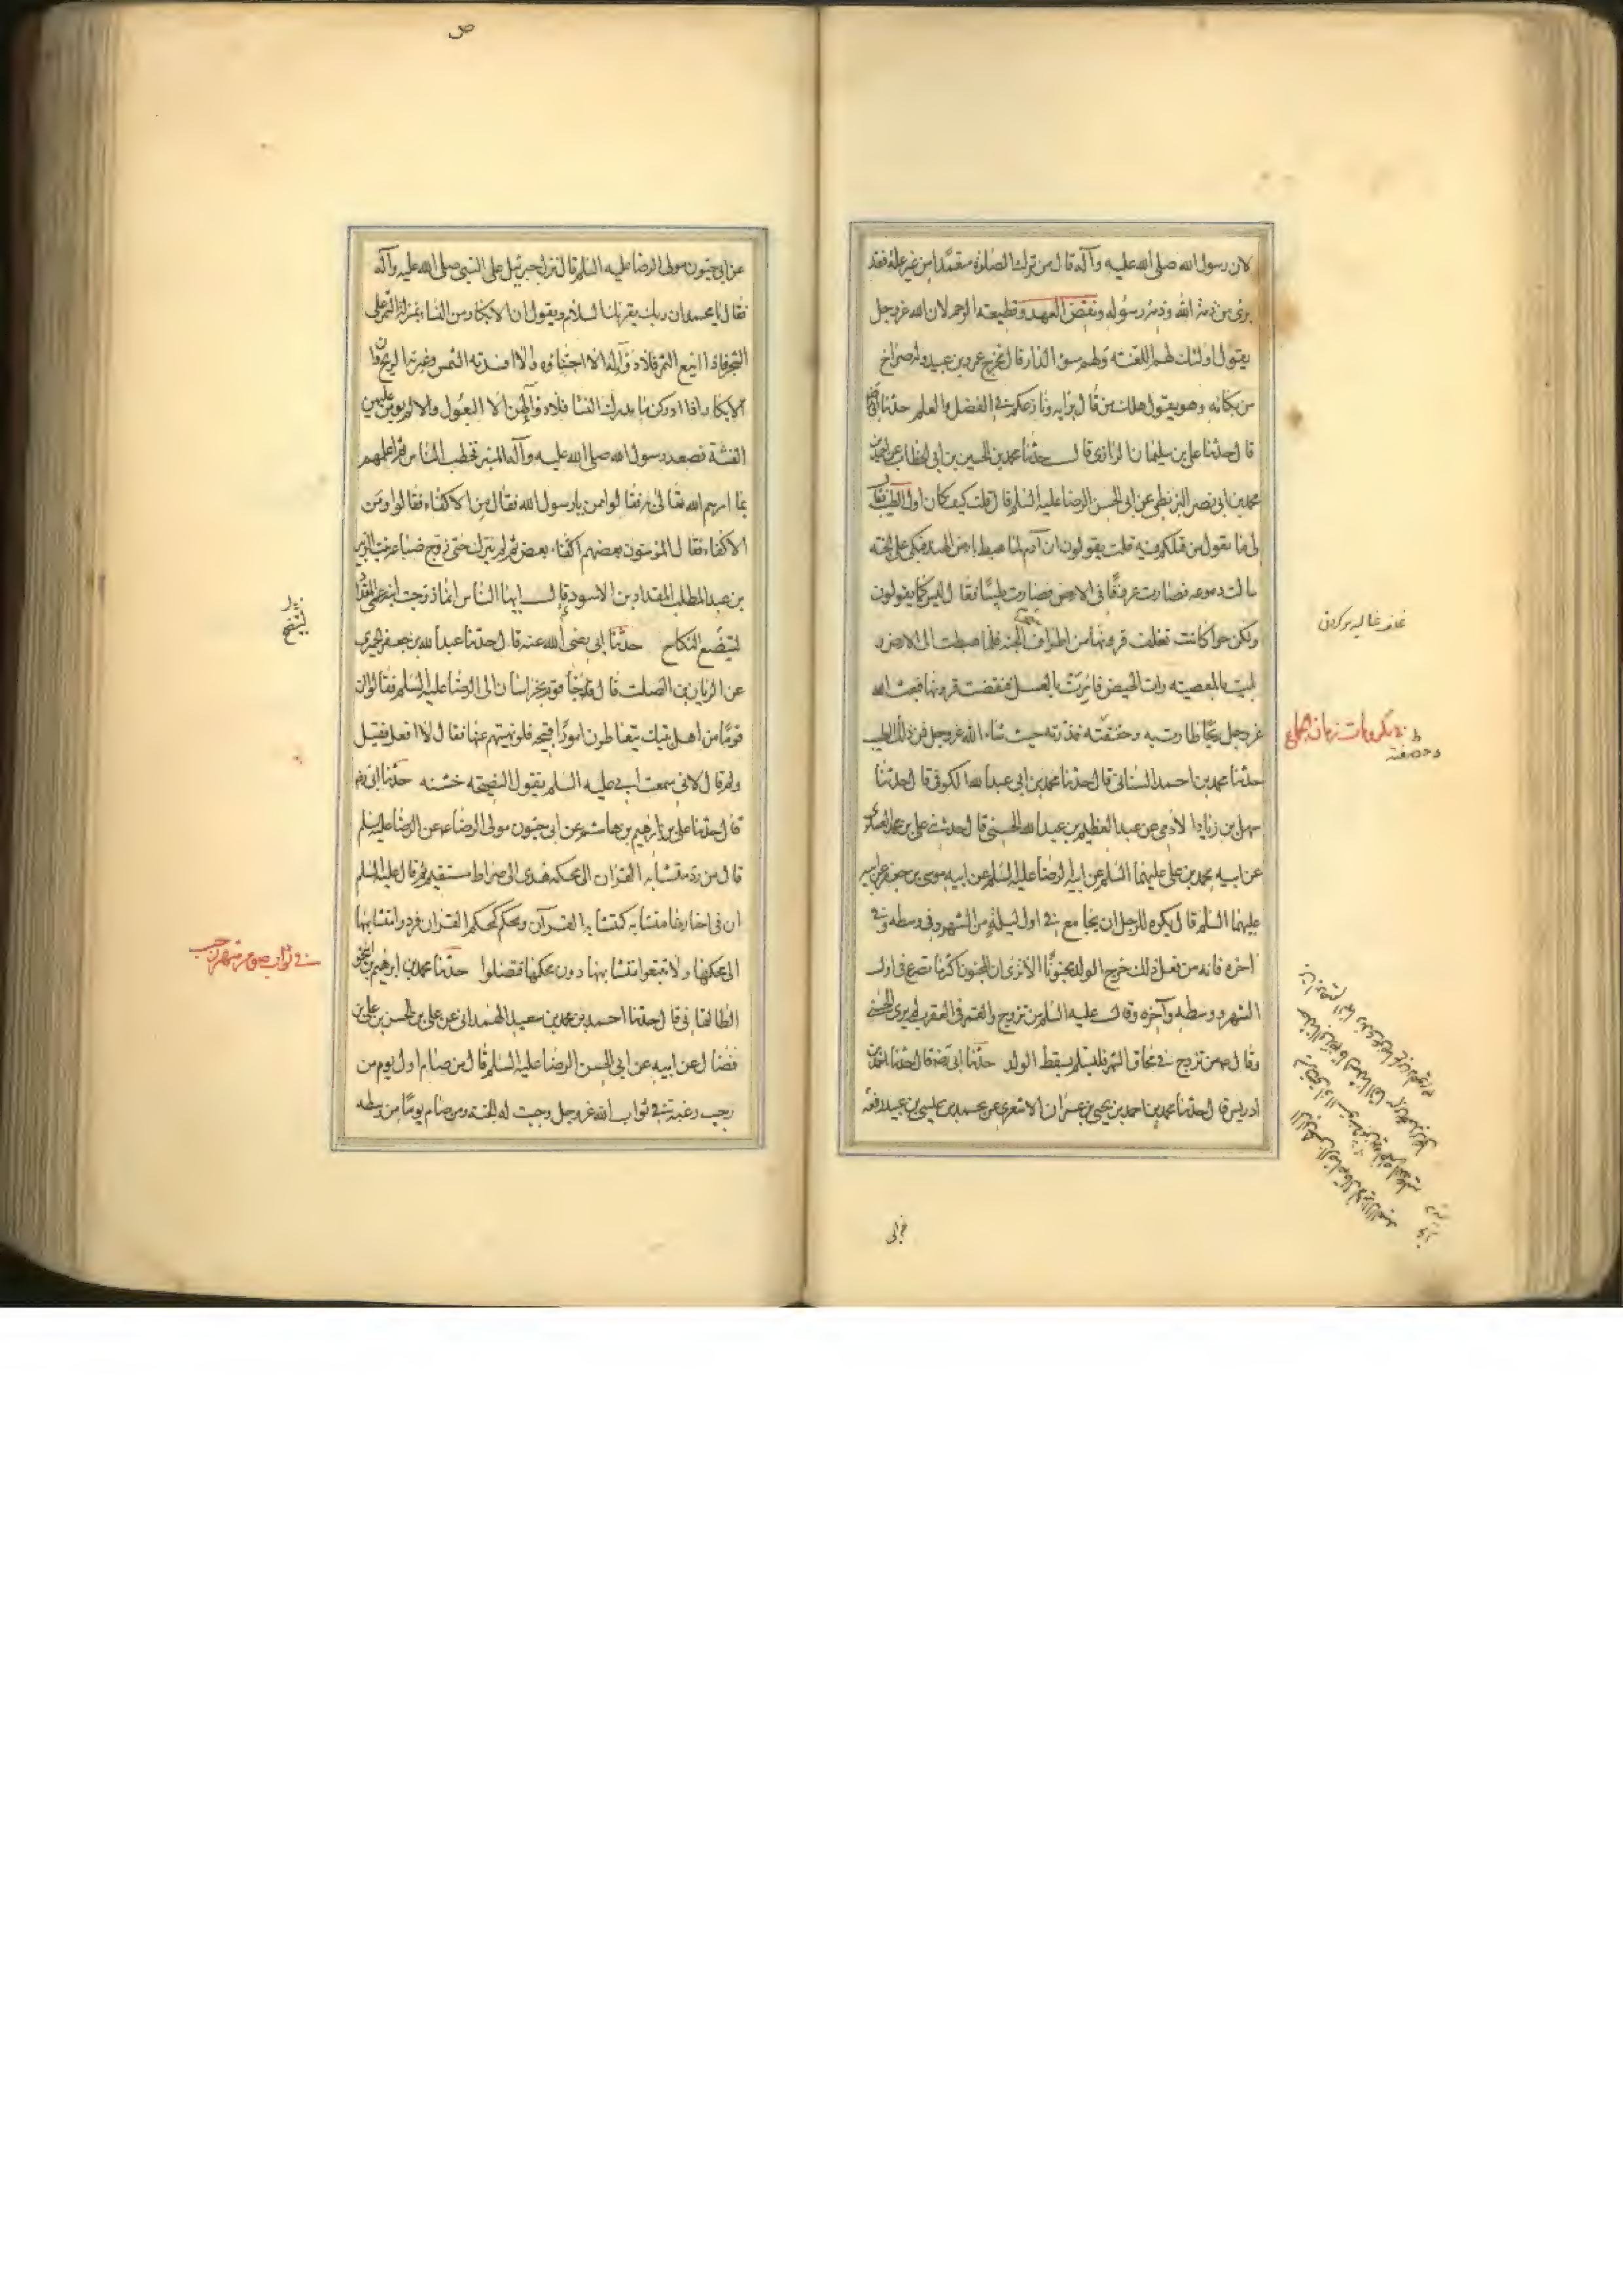 لان رسول الله صلى الله عليه وآله قال من ترك الصلوة متعمدا من غير علة فقد
برئ من ذمة الله وذمة رسوله ونقض العهد وقطيعة الرحم لان الله عز وجل
يقول اولئك لهم اللعنة ولهم سوء الدار قال فخرج عمرو بن عبيد وله صراخ
من بكائه وهو يقول هلك من قال برايه ونازعكم في الفضل والعلم حدثنا
قال حدثنا علي بن سليمان الرازي قال حدثنا محمد بن الحسين بن ابي الخطاب عن احمد بن
محمد بن ابي نصر البزنطي عن ابي الحسن الرضا عليه السلم قال قلت كيف كان اول الطيب فقال
لي ما يقول من قبلكم فيه قلت يقولون ان آدم لما هبط بارض الهند فبكى على الجنة
سالت دموعه فصارت عروقا في الارض فصارت طيبا فقال ليس كما يقولون
ولكن حوا كانت تغلف قرونها من اطراف الجنة فلما هبطت الى الارض و
بليت بالمعصية رات الحيض فامرت بالغسل فنقضت قرونها فبعث الله
عز وجل ريحا طارت به وخفقته فذرته حيث شاء الله عز وجل فمن ذلك الطيب
حدثنا محمد بن احمد السناني قال حدثنا محمد بن ابي عبد الله الكوفي قال حدثنا
سهل بن زياد الادمي عن عبد العظيم بن عبد الله الحسني قال حدثني علي بن محمد العسكري
عن ابيه محمد بن علي عليهما السلم عن ابيه الرضا عليه السلم عن ابيه موسى بن جعفر عن ابيه
عليهما السلم قال يكره للرجل ان يجامع في اول ليلة من الشهر وفي وسطه وفي
آخره فانه من فعل ذلك خرج الولد مجنونا الا ترى ان المجنون اكثر ما تصرع في اول
الشهر ووسطه وآخره وقال عليه السلم من تزوج والقمر في العقرب لم ير الحسنى
وقال من تزوج في محاق الشهر فليسلم بسقط الولد حدثنا ابي رضه قال حدثنا احمد بن
ادريس قال حدثنا محمد بن احمد بن يحيى بن عمران الاشعري عن محمد بن عيسى بن عبيد رفعه
في مكروهات زمان جماع
عن ابي
ص
عن ابي حيون مولى الرضا عليه السلم قال نزل جبرئيل على النبي صلى الله عليه وآله
فقال يا محمد ان ربك يقرئك السلام ويقول ان الابكار من النساء بمنزلة الثمر على
الشجر فاذا اينع الثمر فلا دوآء له الا اجتناؤه والا افسدته الشمس وغيرته الريح وان
الابكار اذا ادركن ما يدرك النساء فلا دوآء لهن الا البعول والا لم يؤمن عليهن
الفتنة فصعد رسول الله صلى الله عليه وآله المنبر فخطب الناس ثم اعلمهم
بما امرهم الله تعالى به فقالوا ممن يا رسول الله فقال من الاكفاء فقالوا ومن
الاكفاء فقال المؤمنون بعضهم اكفاء بعض ثم لم ينزل حتى زوج ضباعة بنت الزبير
بن عبد المطلب المقداد بن الاسود ثم قال ايها الناس انما زوجت ابنة عمي المقداد
ليتضع النكاح حدثنا ابي رضي الله عنه قال حدثنا عبد الله بن جعفر الحميري
عن الريان بن الصلت قال جاء قوم بخراسان الى الرضا عليه السلم فقالوا ان
قوما من اهل بيتك يتعاطون امورا قبيحة فلو نهيتهم عنها فقال لا افعل فقيل
ولم قال لاني سمعت ابي عليه السلم يقول النصيحة خشنة حدثنا ابي رضه
قال حدثنا علي بن ابرهيم بن هاشم عن ابي حيون مولى الرضا ع عن الرضا عليه السلم
قال من رد متشابه القران الى محكمه هدى الى صراط مستقيم ثم قال عليه السلم
ان في اخبارنا متشابه كمتشابه القرآن ومحكم كمحكم القران فردوا متشابهها
الى محكمها ولا تتبعوا متشابهها دون محكمها فتضلوا حدثنا محمد بن ابرهيم بن اسحق
الطالقاني قال حدثنا احمد بن محمد بن سعيد الهمداني عن علي بن الحسن بن علي بن
فضال عن ابيه عن ابي الحسن الرضا عليه السلم قال من صام اول يوم من
رجب رغبة في ثواب الله عز وجل وجبت له الجنة ومن صام يوما من وسطه
في ثواب صوم شهر رجب